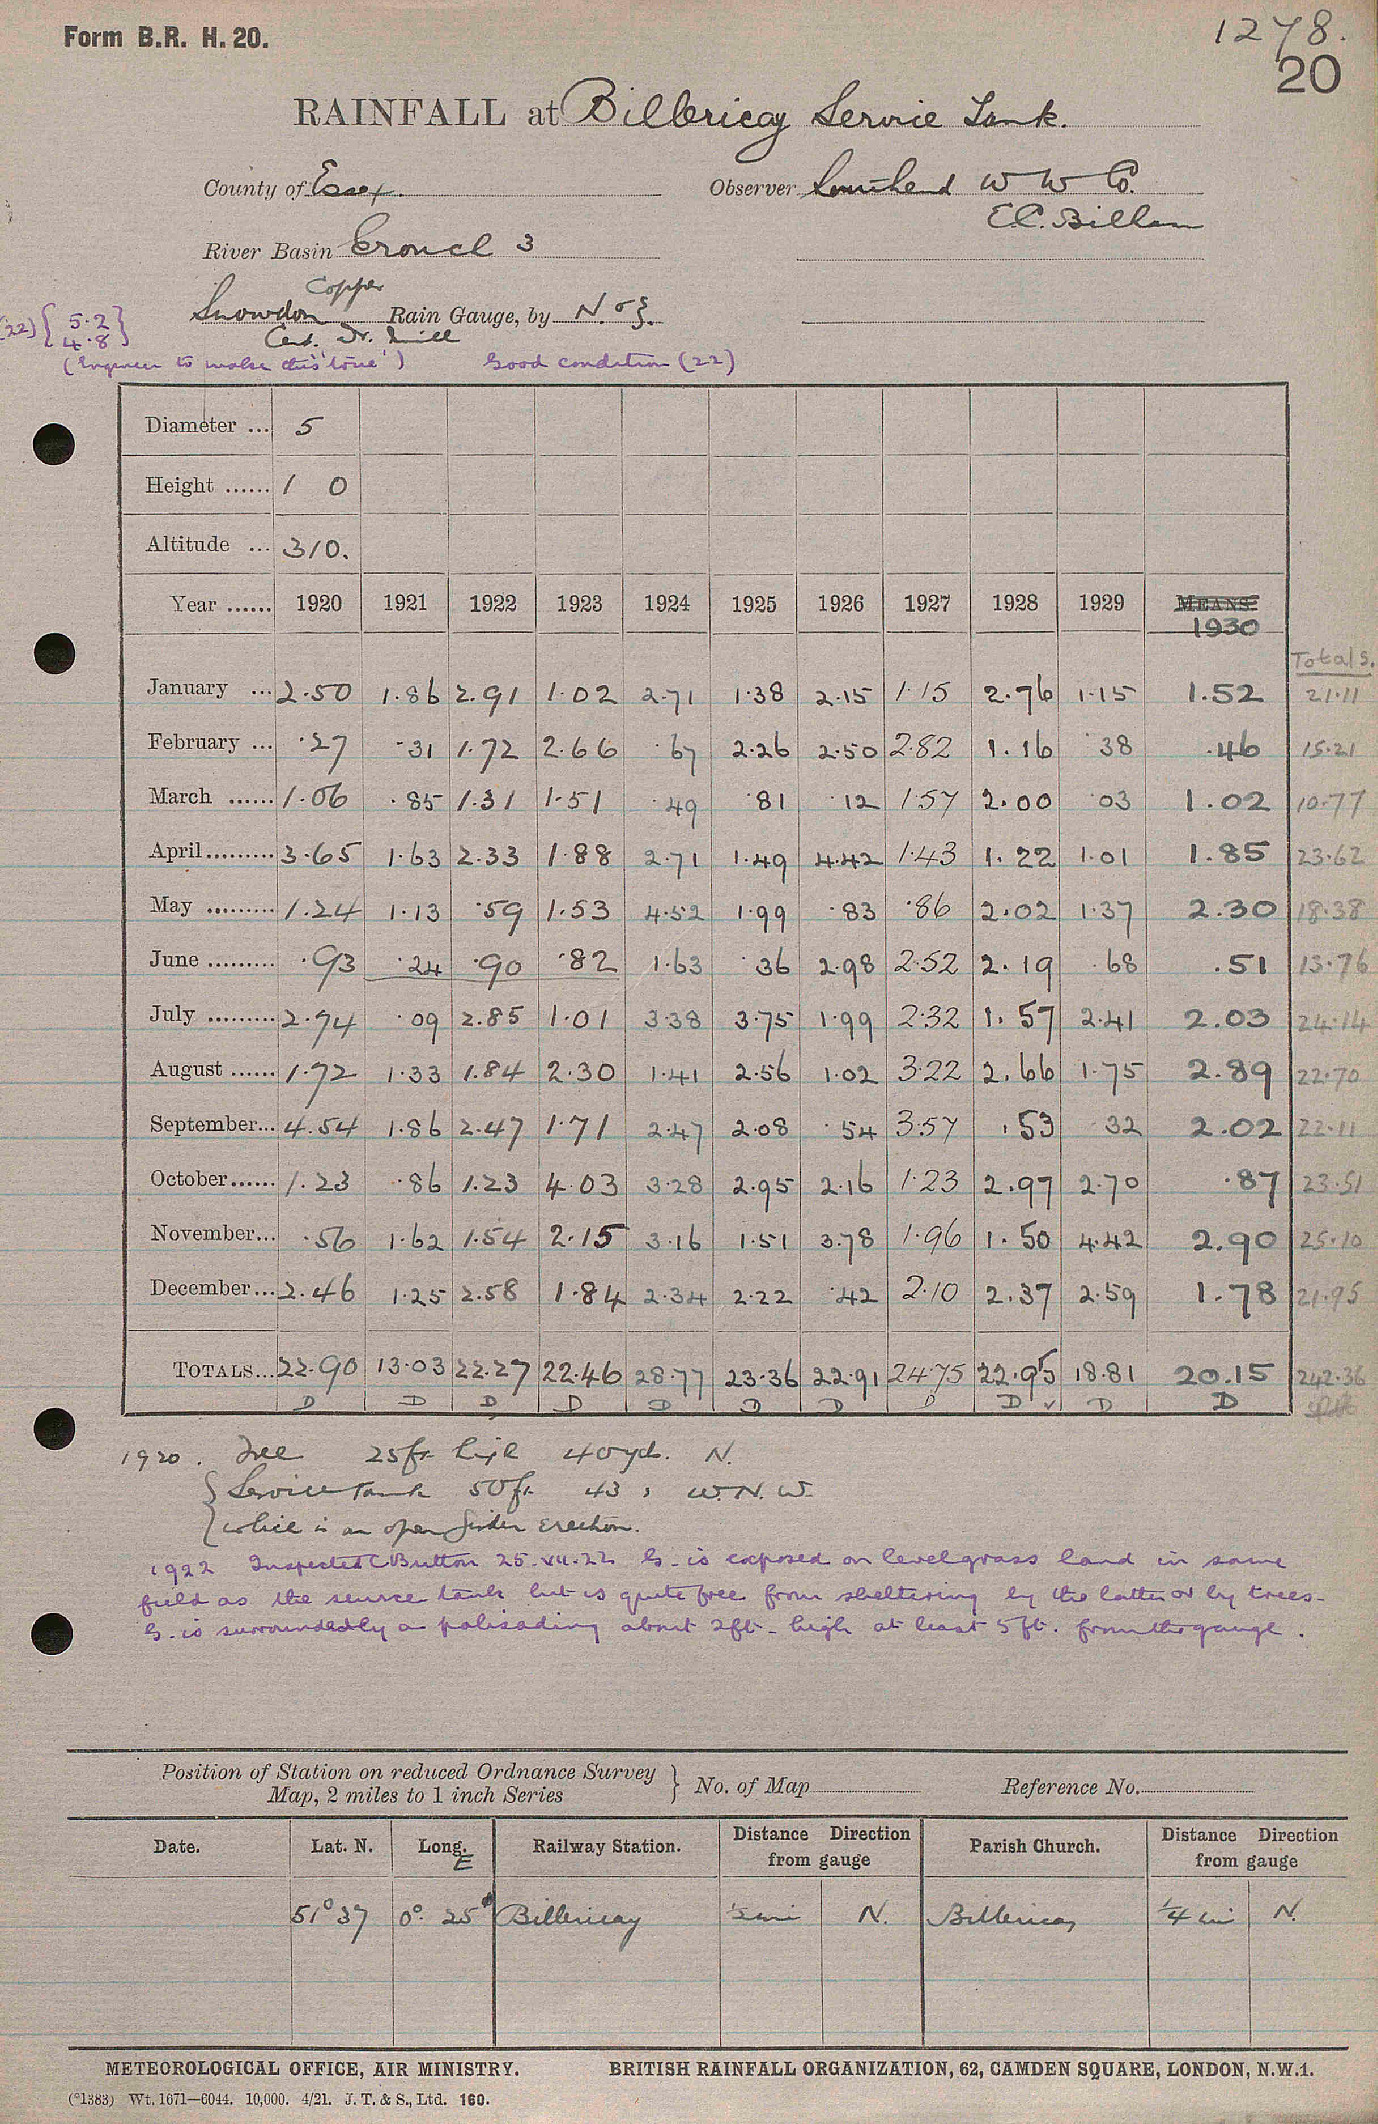 Form B.R. H. 20.
1278.
20
RAINFALL at Billericay Service Tank.
County of Essex. Observer Southend W W Co.
E.C. Billam
River Basin Crouch 3
Copper
Snowdon Rain Gauge, by N. & Z.
Cert. Dr. Mill
(22) { 5.2 }
4.8
(Engineer to make this 'one') Good condition (22)
Diameter ... 5
Height ...... 1 0
Altitude ... 310.
Year ...... 1920 1921 1922 1923 1924 1925 1926 1927 1928 1929 MEANS.
1930
Totals.
January ... 2.50 1.86 2.91 1.02 2.71 1.38 2.15 1.15 2.76 1.15 1.52 21.11
February ... .27 .31 1.72 2.66 .67 2.26 2.50 2.82 1.16 .38 .46 15.21
March ...... 1.06 .85 1.31 1.51 .49 .81 .12 1.57 2.00 .03 1.02 10.77
April ......... 3.65 1.63 2.33 1.88 2.71 1.49 4.42 1.43 1.22 1.01 1.85 23.62
May ......... 1.24 1.13 .59 1.53 4.52 1.99 .83 .86 2.02 1.37 2.30 18.38
June ......... .93 .24 .90 .82 1.63 .36 2.98 2.52 2.19 .68 .51 13.76
July ......... 2.74 .09 2.85 1.01 3.38 3.75 1.99 2.32 1.57 2.41 2.03 24.14
August ...... 1.72 1.33 1.84 2.30 1.41 2.56 1.02 3.22 2.66 1.75 2.89 22.70
September... 4.54 1.86 2.47 1.71 2.47 2.08 .54 3.57 .53 .32 2.02 22.11
October...... 1.23 .86 1.23 4.03 3.28 2.95 2.16 1.23 2.97 2.70 .87 23.51
November... .56 1.62 1.54 2.15 3.16 1.51 3.78 1.96 1.50 4.42 2.90 25.10
December... 2.46 1.25 2.58 1.84 2.34 2.22 .42 2.10 2.37 2.59 1.78 21.95
TOTALS... 22.90 13.03 22.27 22.46 28.77 23.36 22.91 24.75 22.95 18.81 20.15 242.36
D D D D D D D D D ✓ D D
1920. Tree 25ft high 40yds. N.
{ Service Tank 50ft 43 " W.N.W.
{ which is an open girder erection.
1922 Inspected C Button 25.VII.22 G. is exposed on level grass land in same
field as the service tank but is quite free from sheltering by the latter or by trees.
G. is surrounded by a palisading about 2ft. high at least 5ft. from the gauge.
Position of Station on reduced Ordnance Survey
Map, 2 miles to 1 inch Series } No. of Map Reference No.
Date. Lat. N. Long. E Railway Station. Distance Direction from gauge Parish Church. Distance Direction from gauge
51° 37 0° 25' Billericay ½ mi N. Billericay ¼ mi N.
METEOROLOGICAL OFFICE, AIR MINISTRY. BRITISH RAINFALL ORGANIZATION, 62, CAMDEN SQUARE, LONDON, N.W.1.
(*1383) Wt. 1671—6044. 10,000. 4/21. J. T. & S., Ltd. 160.